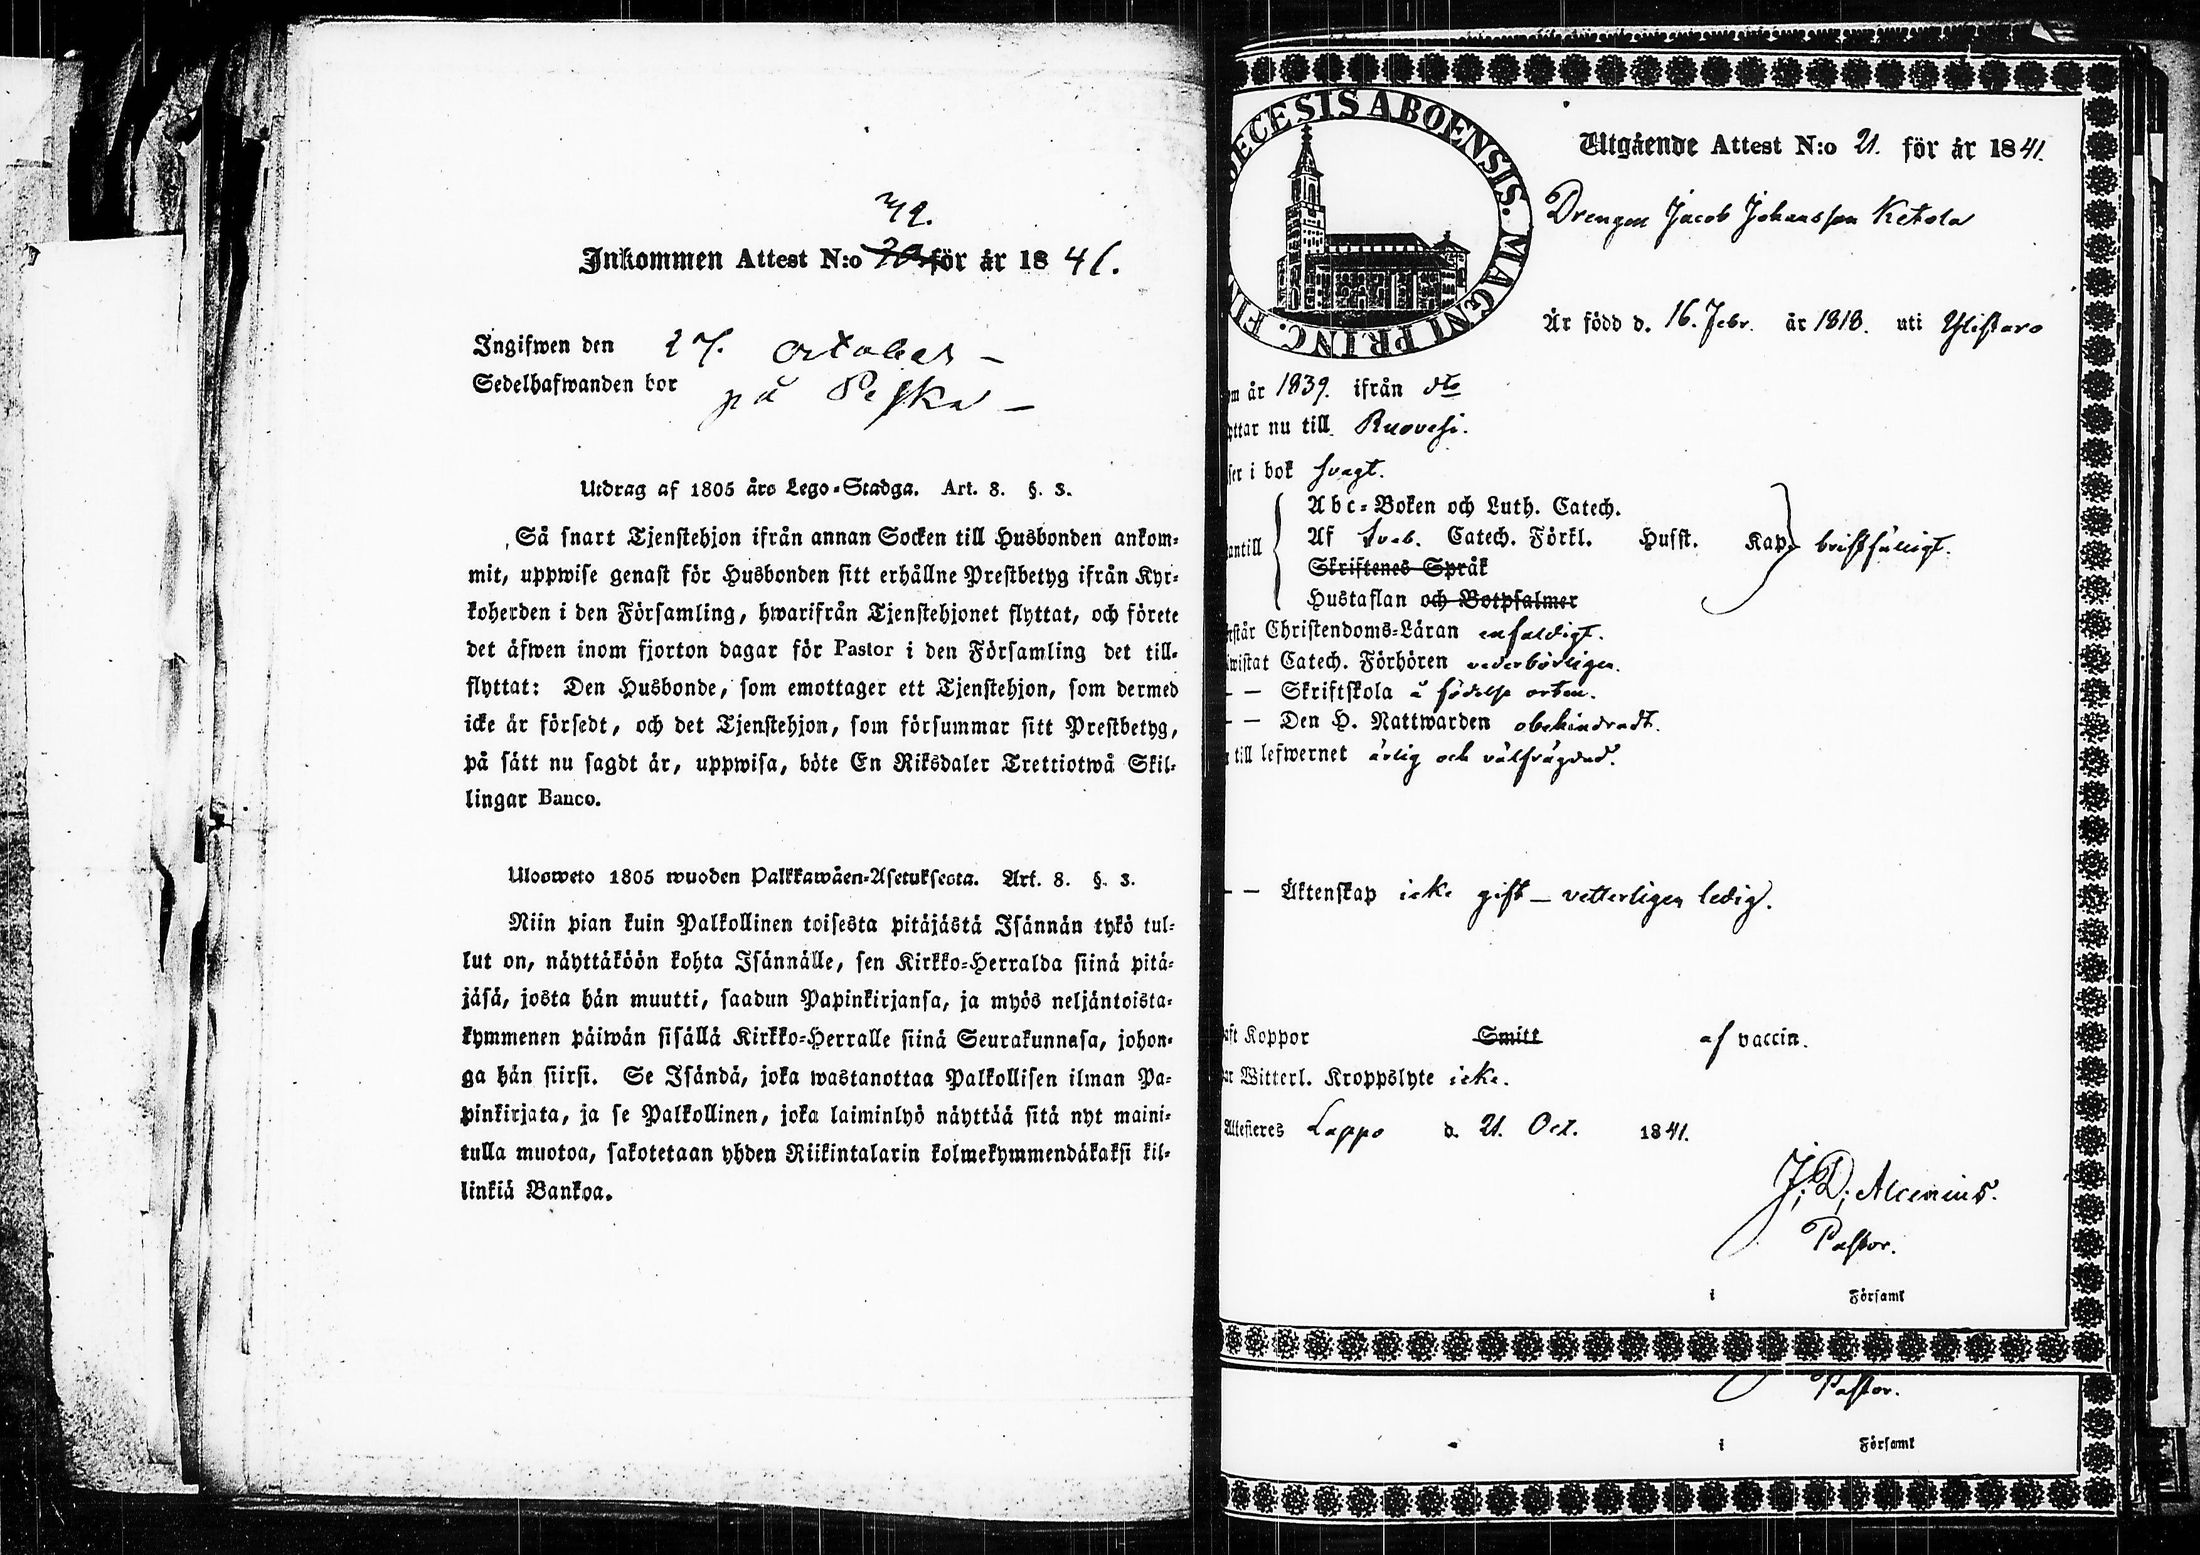 72.
Inkommen Attest N:o för år 1841.
Ingifwen den 27. october –
Sedelhafwanden bor på Peska –
Utdrag af 1805 års Lego-Stadga. Art. 8. §. 3.
Så snart Tjenstehjon ifrån annan Socken till Husbonden ankom-
mit, uppwise genast för Husbonden sitt erhållne Prestbetyg ifrån Kyr-
koherden i den Församling, hwarifrån Tjenstehjonet flyttat, och förete
det äfwen inom fjorton dagar för Pastor i den Församling det till-
flyttat: Den Husbonde, som emottager ett Tjenstehjon, som dermed
icke är försedt, och det Tjenstehjon, som försummar sitt Prestbetyg,
på sätt nu sagdt är, uppwisa, böte En Riksdaler Trettiotwå Skil-
lingar Banco.
Uloosweto 1805 wuoden Palkkawäen-Asetuksesta. Art. 8. §. 3.
Niin pian kuin Palkollinen toisesta pitäjästä Isännän tykö tul-
lut on, näyttäköön kohta Isännälle, sen Kirkko-Herralda siinä pitä-
jäsä, josta hän muutti, saadun Papinkirjansa, ja myös neljäntoista-
kymmenen päiwän sisällä Kirkko-Herralle siinä Seurakunnasa, johon-
ga hän siirsi. Se Isändä, joka wastanottaa Palkollisen ilman Pa-
pinkirjata, ja se Palkollinen, joka laiminlyö näyttää sitä nyt maini-
tulla muotoa, sakotetaan yhden Riikintalarin kolmekymmendäkaksi kil-
linkiä Bankoa.
ECESIS ABOENSIS. MAGNI PRINC. FIN
Utgående Attest N:o 21. för år 1841.
Drengen Jacob Johansson Ketola
Är född d. 16. Febr. år 1818. uti Ylistaro
om år 1839. ifrån dto
yttar nu till Ruovesi.
ser i bok svagt.
antill
Abc-Boken och Luth. Catech.
Af Sveb. Catech. Förkl. Husst. Kap. bristfälligt.
Skriftenes Språk
Hustaflan och Botpsalmer
rstår Christendoms-Läran enfaldigt.
iwistat Catech. Förhören vederbörligen.
– – Skriftskola å födelse orten.
– – Den H. Nattwarden obehindradt.
till lefwernet ärlig och välfrägdad.
– – Äktenskap icke gift – vetterligen ledig.
aft Koppor Smitt af vaccin.
ar Witterl. Kroppslyte icke.
Attesteres Lappo d. 21. Oct. 1841.
J. D. Alcenius.
Pastor.
i Församl
Pastor.
i Församl